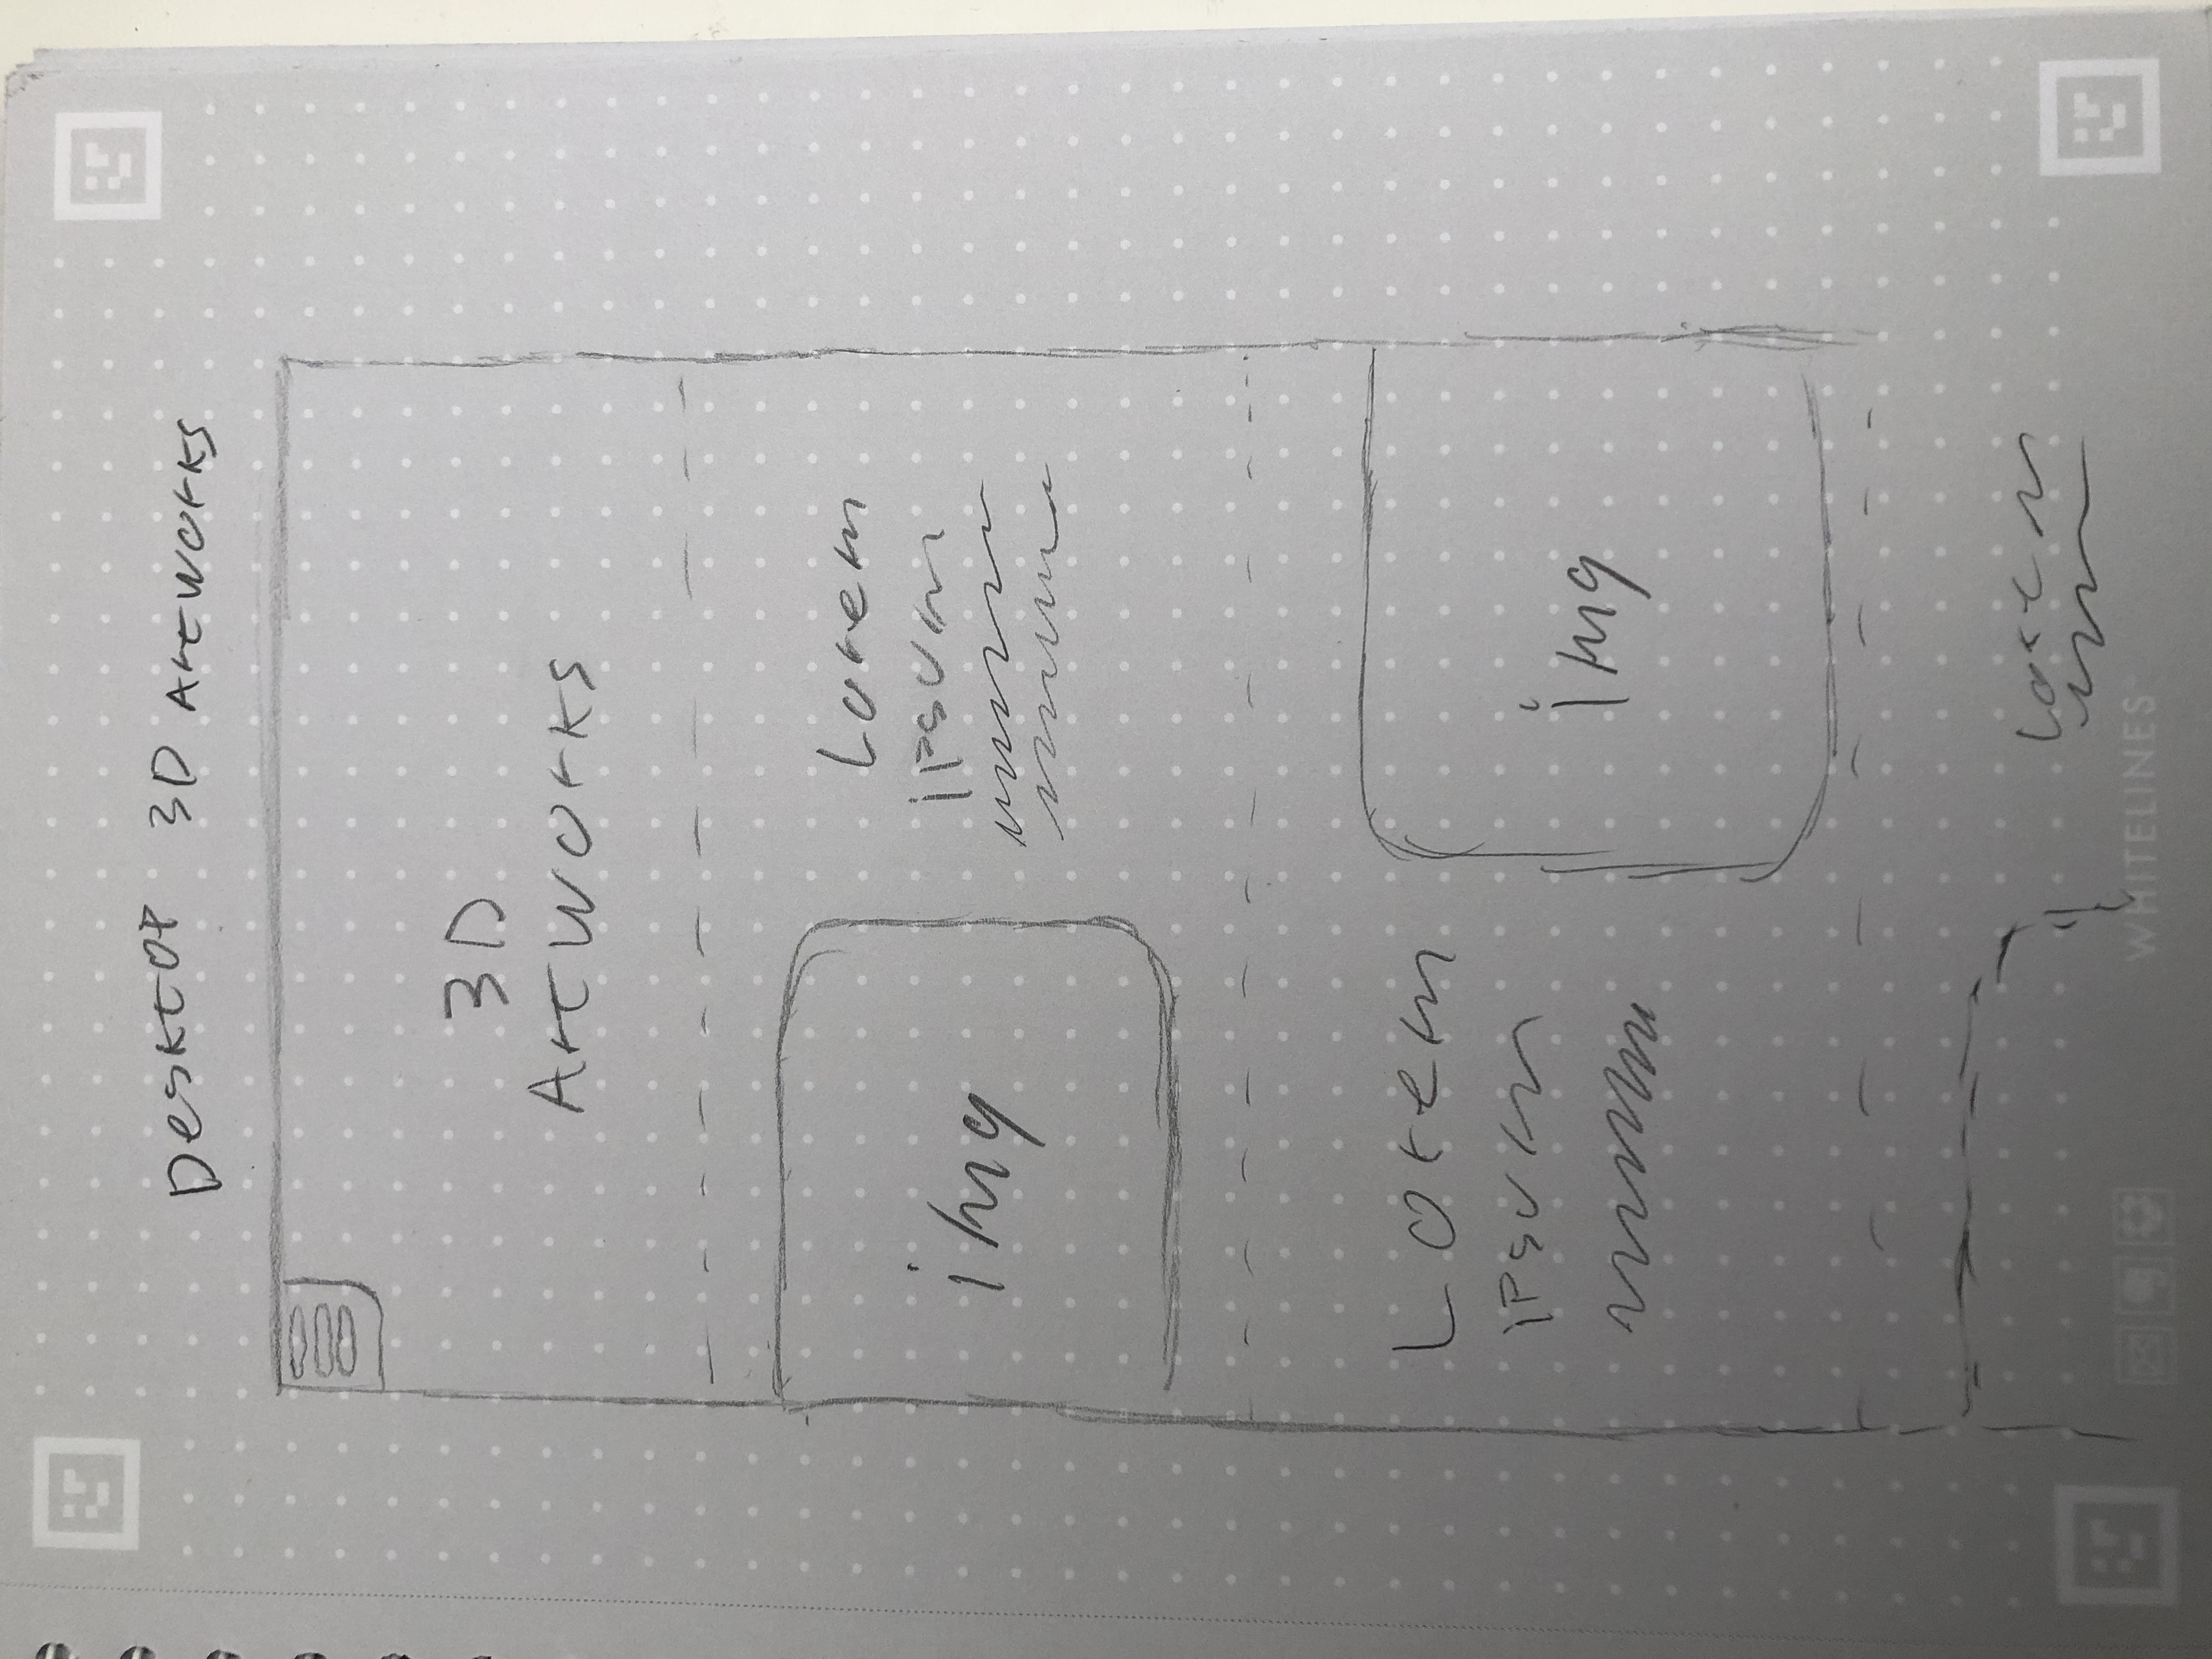 Desktop 3D Artworks
3D
Artworks
img
Lorem
ipsum
Lorem
ipsum
img
Lorem
WHITELINES